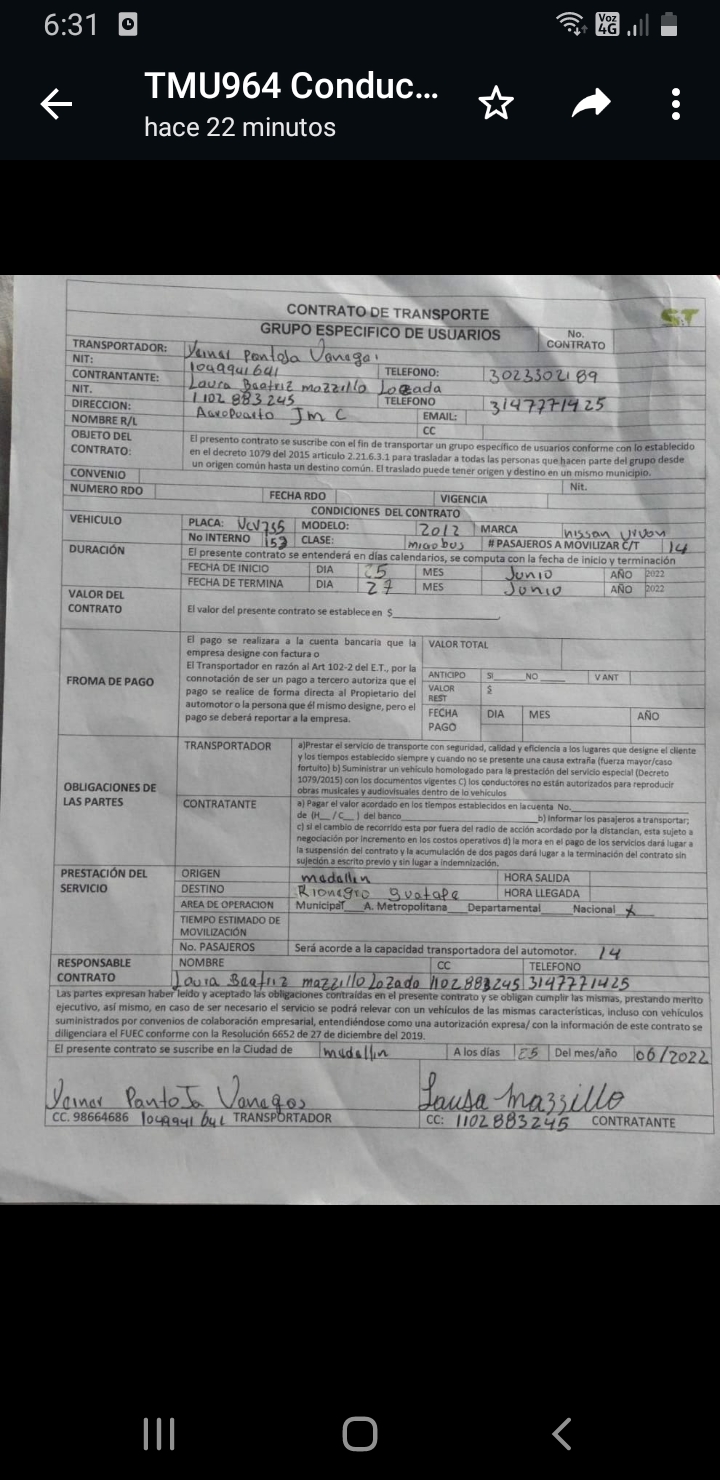 6:31
Voz 4G
TMU964 Conduc...
hace 22 minutos
CONTRATO DE TRANSPORTE
GRUPO ESPECIFICO DE USUARIOS
No. CONTRATO
ST
TRANSPORTADOR: Yeiner Pantoja Vanegas
NIT: 1049941641 TELEFONO: 3023302189
CONTRATANTE: Laura Beatriz mazzillo Lozada
NIT. 1102883245 TELEFONO 3147771425
DIRECCION: Aeropuerto JMC EMAIL:
NOMBRE R/L CC
OBJETO DEL CONTRATO: El presento contrato se suscribe con el fin de transportar un grupo específico de usuarios conforme con lo establecido
en el decreto 1079 del 2015 articulo 2.21.6.3.1 para trasladar a todas las personas que hacen parte del grupo desde
un origen común hasta un destino común. El traslado puede tener origen y destino en un mismo municipio.
CONVENIO Nit.
NUMERO RDO FECHA RDO VIGENCIA
CONDICIONES DEL CONTRATO
VEHICULO PLACA: VCV755 MODELO: 2012 MARCA nissan urvan
No INTERNO 153 CLASE: microbus # PASAJEROS A MOVILIZAR C/T 14
DURACIÓN El presente contrato se entenderá en días calendarios, se computa con la fecha de inicio y terminación
FECHA DE INICIO DIA 25 MES Junio AÑO 2022
FECHA DE TERMINA DIA 27 MES Junio AÑO 2022
VALOR DEL CONTRATO El valor del presente contrato se establece en $
FROMA DE PAGO
El pago se realizara a la cuenta bancaria que la
empresa designe con factura o
El Transportador en razón al Art 102-2 del E.T., por la
connotación de ser un pago a tercero autoriza que el
pago se realice de forma directa al Propietario del
automotor o la persona que él mismo designe, pero el
pago se deberá reportar a la empresa.
VALOR TOTAL
ANTICIPO SI NO V ANT
VALOR REST $
FECHA PAGO DIA MES AÑO
OBLIGACIONES DE LAS PARTES
TRANSPORTADOR a)Prestar el servicio de transporte con seguridad, calidad y eficiencia a los lugares que designe el cliente
y los tiempos establecido siempre y cuando no se presente una causa extraña (fuerza mayor/caso
fortuito) b) Suministrar un vehículo homologado para la prestación del servicio especial (Decreto
1079/2015) con los documentos vigentes C) los conductores no están autorizados para reproducir
obras musicales y audiovisuales dentro de lo vehículos
CONTRATANTE a) Pagar el valor acordado en los tiempos establecidos en lacuenta No.
de (H__/C__) del banco b) Informar los pasajeros a transportar;
c) si el cambio de recorrido esta por fuera del radio de acción acordado por la distancian, esta sujeto a
negociación por incremento en los costos operativos d) la mora en el pago de los servicios dará lugar a
la suspensión del contrato y la acumulación de dos pagos dará lugar a la terminación del contrato sin
sujeción a escrito previo y sin lugar a indemnización.
PRESTACIÓN DEL SERVICIO
ORIGEN medellin HORA SALIDA
DESTINO Rionegro guatape HORA LLEGADA
AREA DE OPERACION Municipal___A. Metropolitana___Departamental___Nacional X
TIEMPO ESTIMADO DE MOVILIZACIÓN
No. PASAJEROS Será acorde a la capacidad transportadora del automotor. 14
RESPONSABLE CONTRATO NOMBRE CC TELEFONO
Laura Beatriz mazzillo Lozada 1102883245 3147771425
Las partes expresan haber leído y aceptado las obligaciones contraídas en el presente contrato y se obligan cumplir las mismas, prestando merito
ejecutivo, así mismo, en caso de ser necesario el servicio se podrá relevar con un vehículos de las mismas características, incluso con vehículos
suministrados por convenios de colaboración empresarial, entendiéndose como una autorización expresa/ con la información de este contrato se
diligenciara el FUEC conforme con la Resolución 6652 de 27 de diciembre del 2019.
El presente contrato se suscribe en la Ciudad de medellin A los días 25 Del mes/año 06/2022
Yeiner Pantoja Vanegas Laura Mazzillo
CC. 98664686 1049941641 TRANSPORTADOR CC: 1102883245 CONTRATANTE